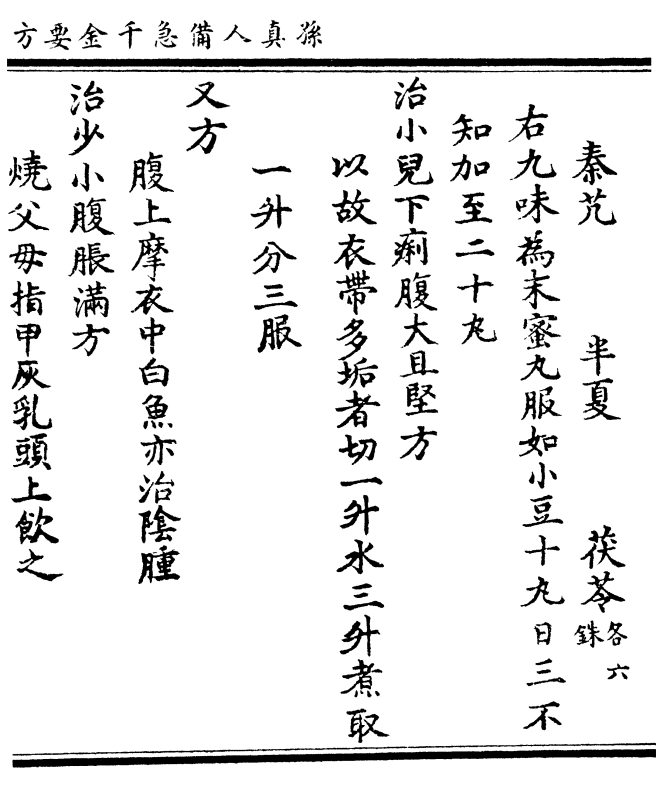 孫真人備急千金要方
秦艽 半夏 茯苓各六銖
右九味為末蜜丸服如小豆十丸日三不
知加至二十丸
治小兒下痢腹大且堅方
以故衣帶多垢者切一升水三升煮取
一升分三服
又方
腹上摩衣中白魚亦治陰腫
治少小腹脹滿方
燒父母指甲灰乳頭上飲之